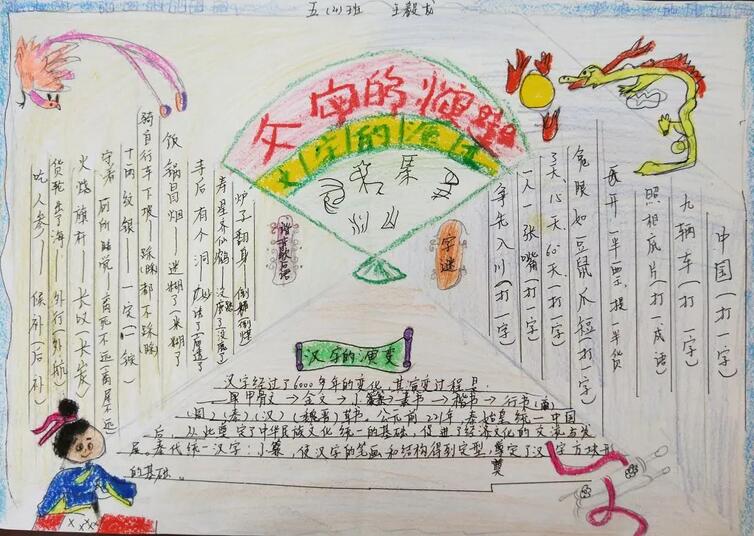 五(2)班
文字的演
文字的演
中国(打一字)
九辆车(打一字)
照相底片(打一成语)
展开一半票,提一半货
兔眼如豆鼠爪短(打一字)
7天、15天、60天、(打一字)
一人一张嘴(打一字)
争先入川(打一字)
字谜
谐音歇后语
炉子翻身——倒煤(倒霉)
寺后有个洞
饭锅冒烟——迷糊了(米糊了
骑自行车下坡——睬睬都不睬睬
十两纹银——一定(一锭)
火烧旗杆——长叹(长炭)
货轮出了海——外行(外航)
吃人参——候补(后补)
汉字的演变
汉字经过了6000多年的变化,其演变过程是:
甲骨文→金文→小篆→隶书→楷书→行书(商)
(周)(秦)(汉)(魏晋)草书。公元前221年,秦始皇统一中国
后,从此奠定了中华民族文化统一的基础,促进了经济文化的交流与发
展。秦代统一汉字:小篆,使汉字的笔画和结构得到定型,奠定了汉字方块形
奠
的基础。